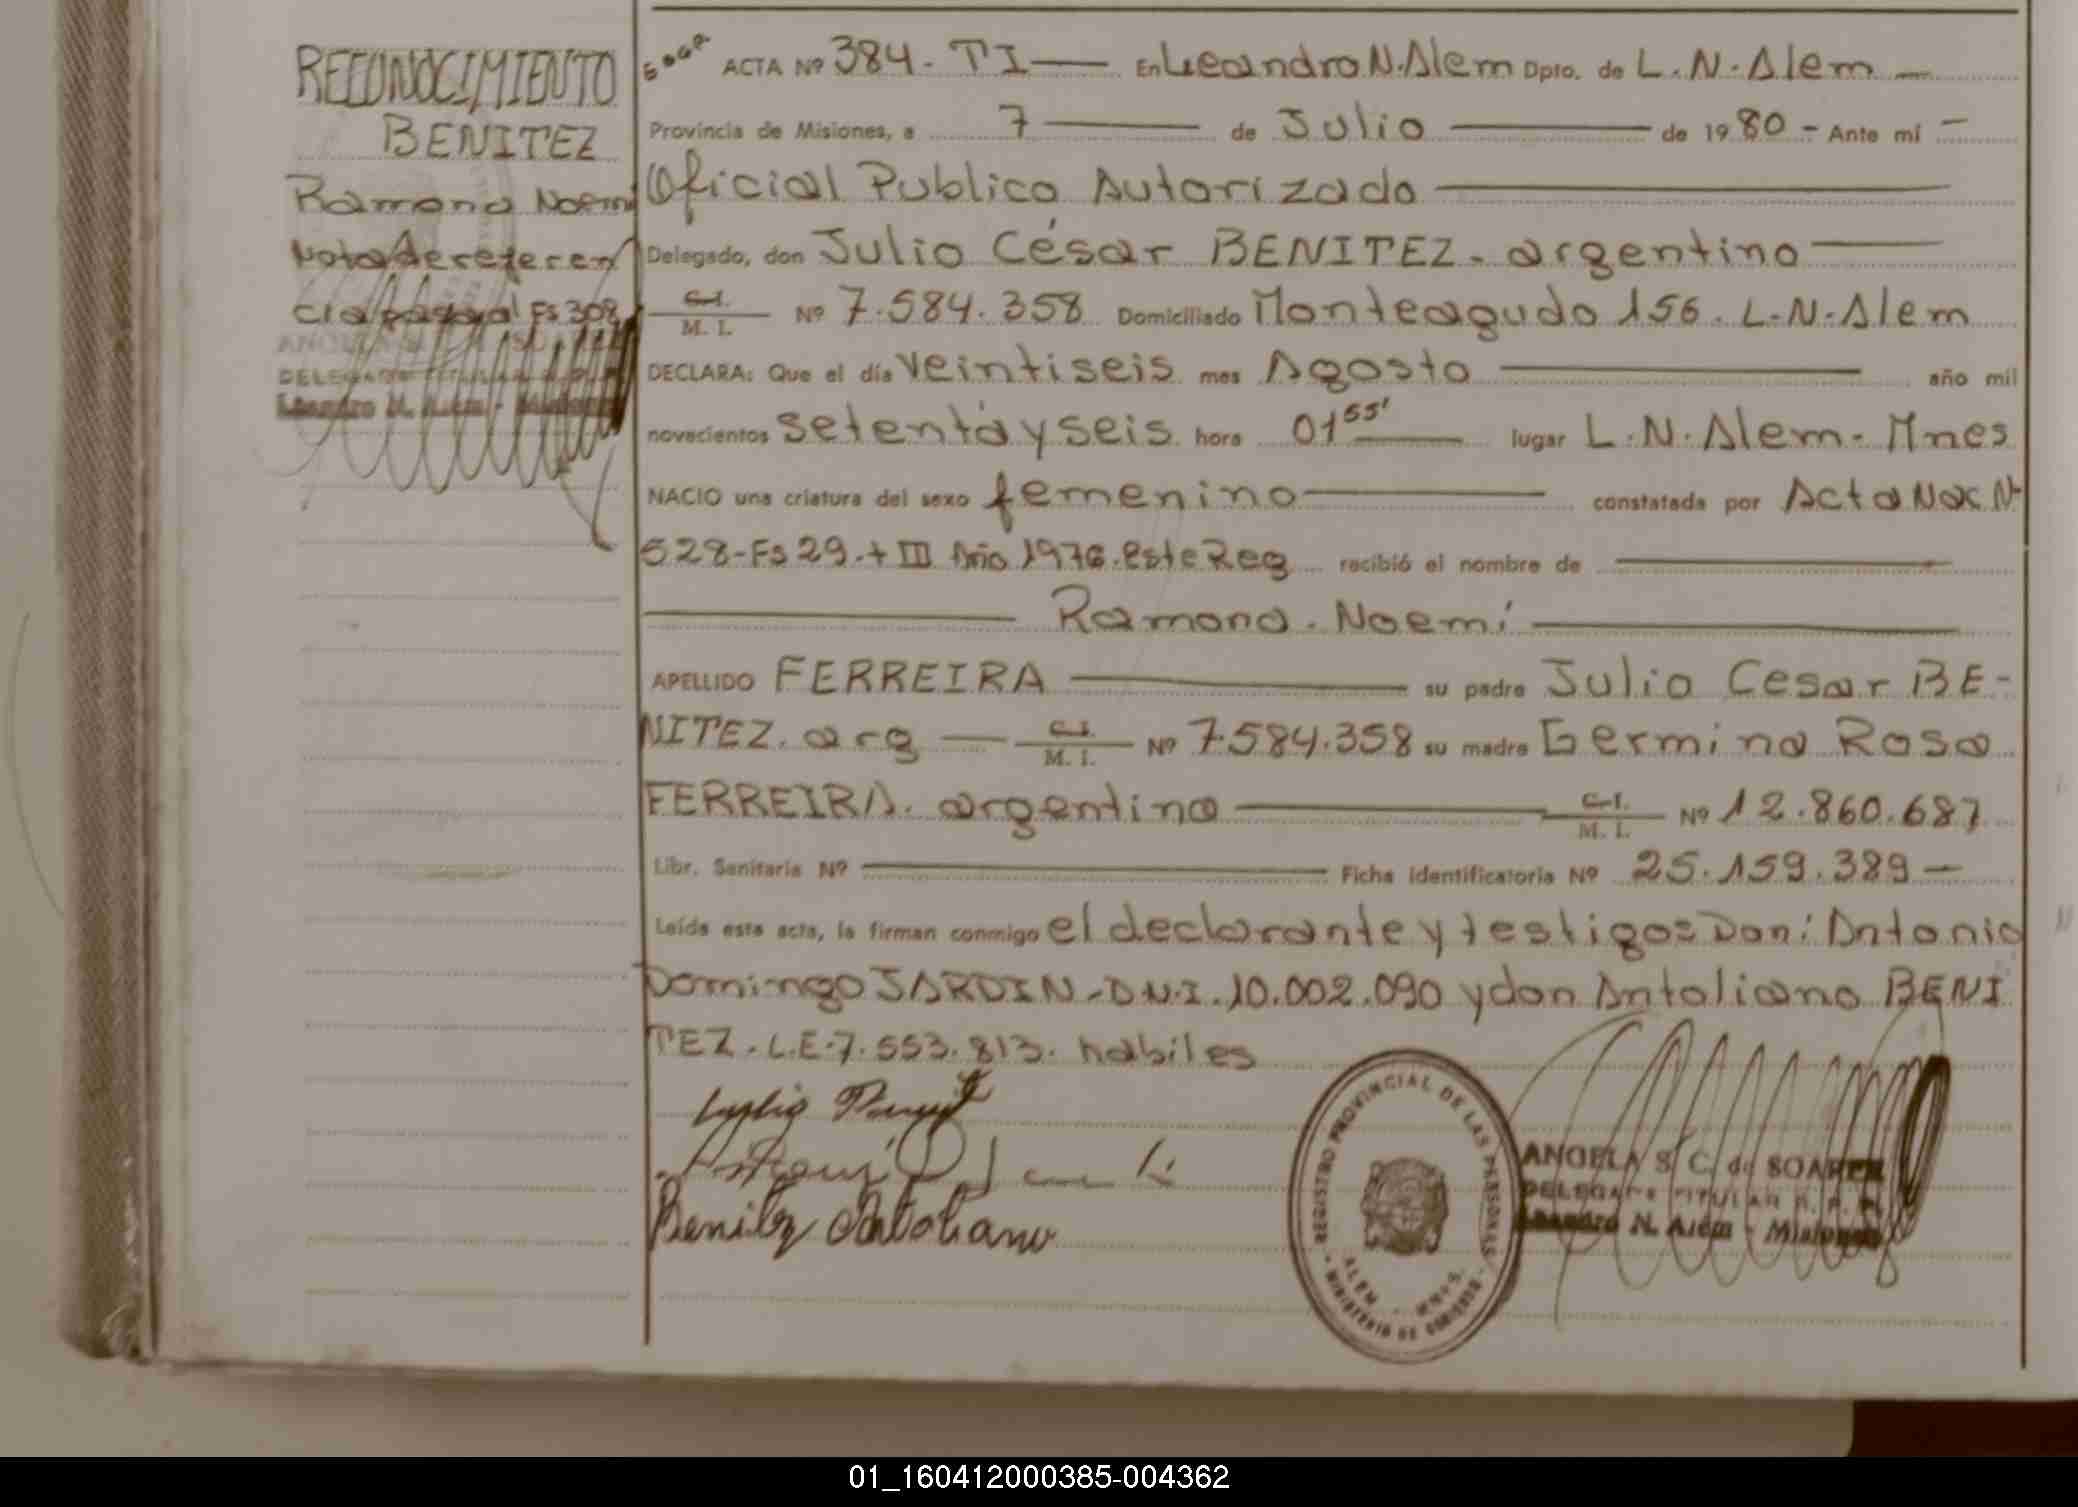 RECONOCIMIENTO
BENITEZ
Ramona Noemi
Nota de referen
cia Fs 308
DELEGADO TITULAR
Leandro N. Alem - Misiones
ACTA Nº 384 - TI — En Leandro N. Alem Dpto. de L. N. Alem —
Provincia de Misiones, a 7 — de Julio — de 1980 - Ante mí —
Oficial Publico Autorizado —
Delegado, don Julio César BENITEZ. argentino —
C.I. M. I. Nº 7.584.358 Domiciliado Monteagudo 156. L.N. Alem
DECLARA: Que el día veintiseis mes Agosto — año mil
novecientos setenta y seis hora 01 55' — lugar L. N. Alem - Mnes
NACIO una criatura del sexo femenino — constatada por Acta Nac N-
528 - Fs 29. t III Año 1976. este Reg recibió el nombre de —
— Ramona. Noemi —
APELLIDO FERREIRA — su padre Julio Cesar BE-
NITEZ. arg — C.I. M. I. Nº 7.584.358 su madre Germina Rosa
FERREIRA. argentina — C.I. M. I. Nº 12.860.687
Libr. Sanitaria Nº — Ficha Identificatoria Nº 25.159.389 —
Leída esta acta, la firman conmigo el declarante y testigos Don: Antonio
Domingo JARDIN - D.N.I. 10.002.090 y don Antoliano BENI
TEZ. L.E. 7.553.813. habiles
Benitez Antoliano
REGISTRO PROVINCIAL DE LAS PERSONAS
ALEM - MNES.
MINISTERIO DE GOBIERNO
ANGELA S. C. de SOARES
DELEGADO TITULAR R. P. P.
Leandro N. Alem - Misiones
01_160412000385-004362